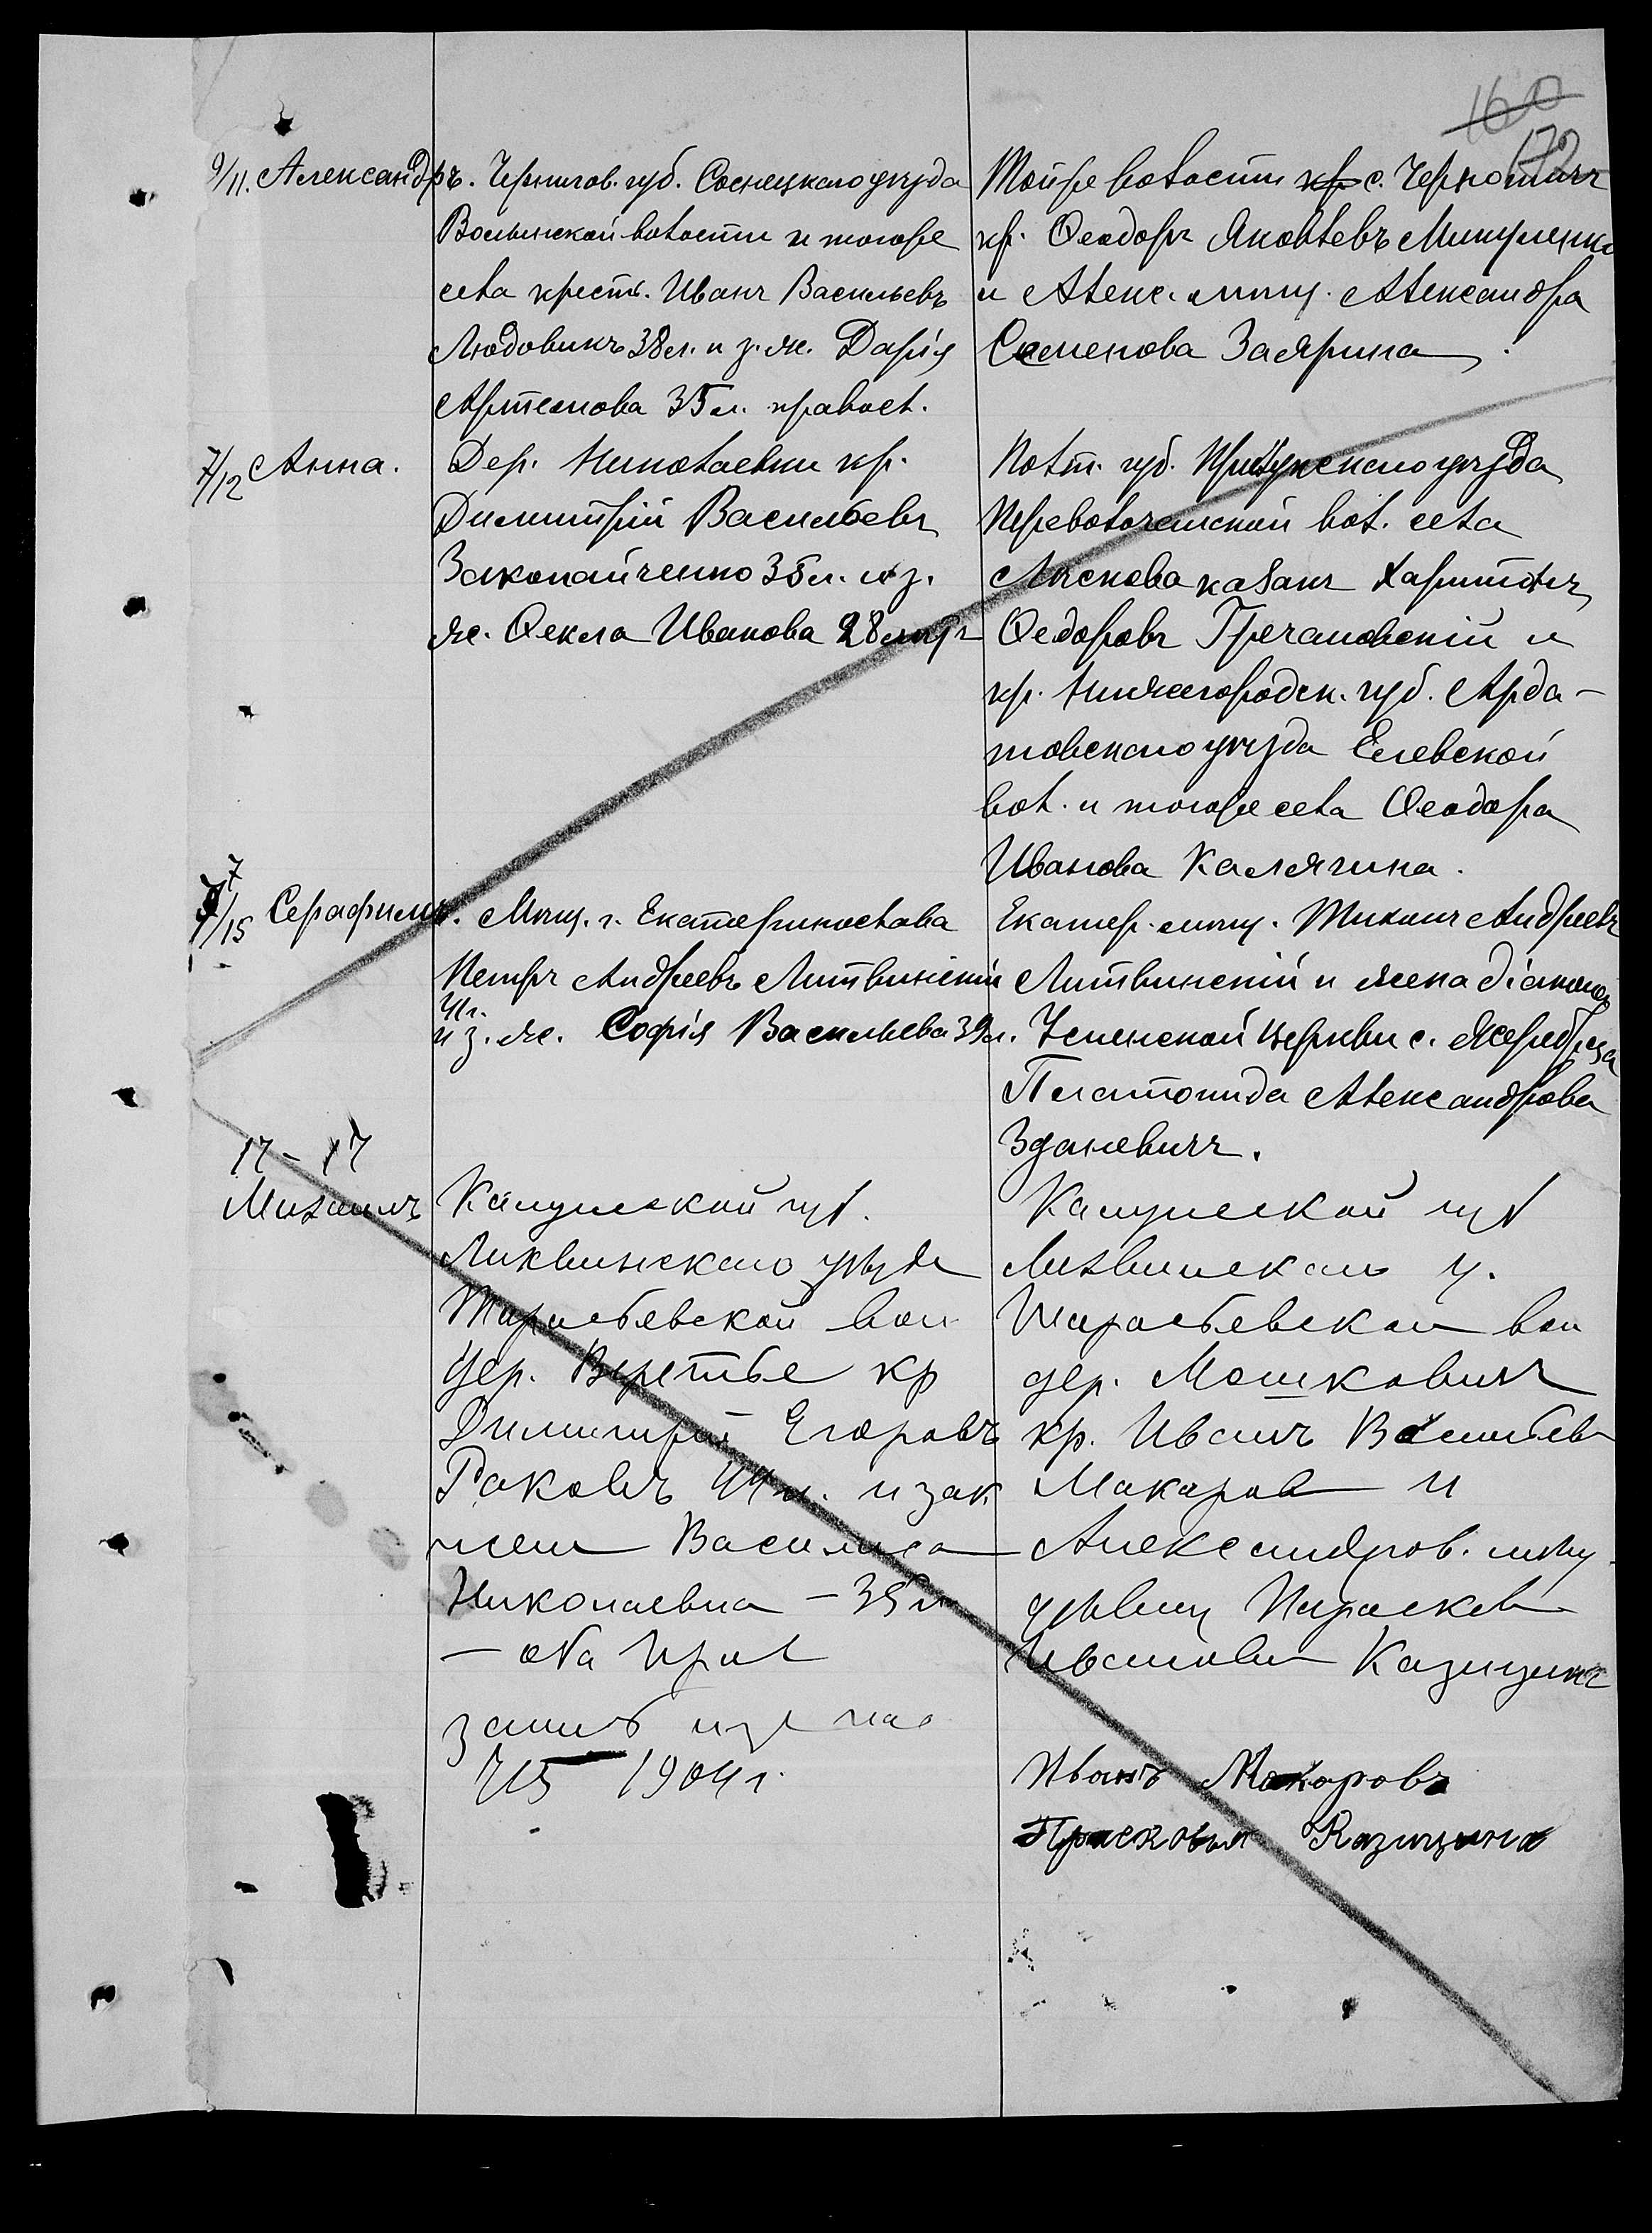 160
172
9/11. Александръ. Чернигов. губ. Сосницкаго уѣзда
Волынской волости и тогоже
села крест. Иванъ Васильевъ
Людовикъ 38 л. и з. ж. Дарія
Артемова 35 л. правосл.
Тойже волости с. Чернотичъ
кр. Ѳеодоръ Яковлевъ
и Алекс. мѣщ. Александра
Семенова Заярина.
7/12 Анна.
Дер. Николаевки кр.
Димитрій Васильевъ
35 л. и з.
ж. Ѳекла Иванова 28 лѣтъ
Полт. губ. Прилукскаго уѣзда
Переволочанской вол. села
казакъ Харитонъ
Ѳедоровъ Гречановскій и
кр. Нижегородск. губ. Арда-
товскаго уѣзда Елевской
вол. и тогоже села Ѳеодора
Иванова Калягина.
7/15 Серафимъ.
Мѣщ. г. Екатеринослава
Петръ Андреевъ Литвинскій
41 г.
и з. ж. Софія Васильева 39 л.
Екатер. мѣщ. Тихонъ Андреевъ
Литвинскій и жена діакона
Успенской церкви с. Жеребца
Платонида Александрова
Зданевичъ.
17 - 17
Михаилъ
Калужской губ.
Лихвинскаго уѣзда
вол
дер. Веретье кр
Димитрій Егоровъ
Раковъ 44 л. и зак
жена Василиса
Николаевна - 35 л
- оба прав
1904 г.
Калужской губ
Лихвинскаго у.
вол
дер. Мошковичъ
кр. Иванъ Васильев
Макаров и
Александров. мѣщ.
дѣвиц Параскева
Ивановна Казицына
Иванъ Макоровъ
Прасковья Казицина